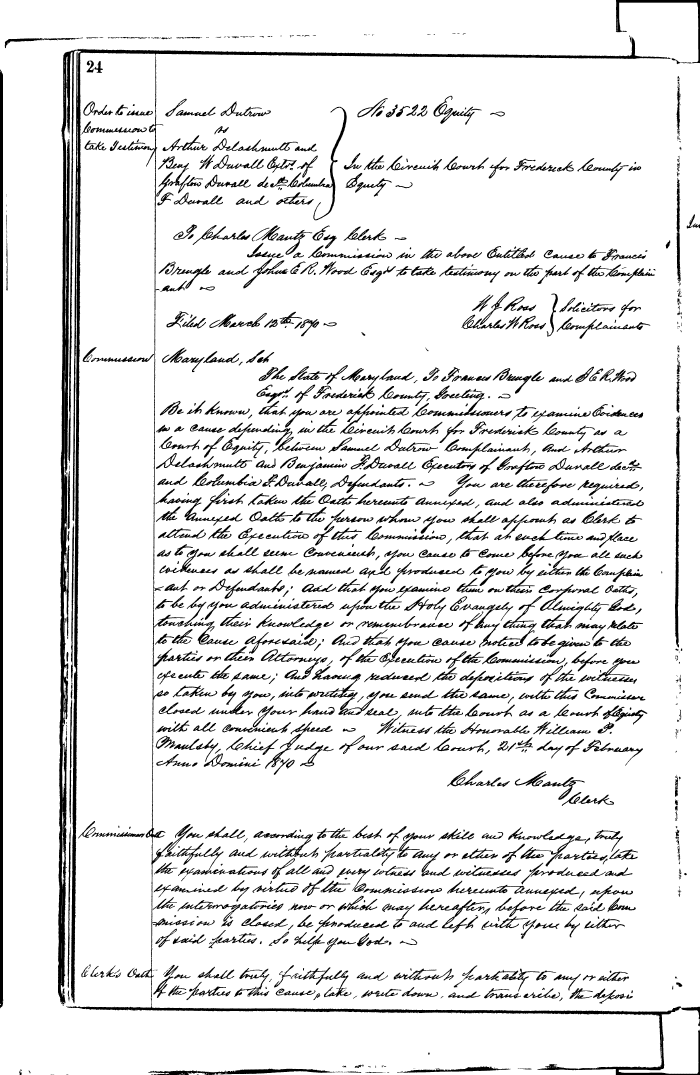 24
Order to issue
Commission to
take Testimony
Samuel Dutrow
vs
Arthur Delashmutt and
Benj W Duvall Extrs. of
Grafton Duvall decd. Columbia
F Duvall and others
No 3522 Equity
In the Circuit Court for Frederick County in
Equity
To Charles Mantz Esq Clerk
Issue a Commission in the above Entitled cause to Francis
Brengle and John E. R. Wood Esqrs to take testimony on the part of the Complain
-ant
W J Ross
Charles W Ross
Solicitors for
Complainants
Filed March 12th 1870
Commission
Maryland, Sct
The State of Maryland, To Francis Brengle and J E. R. Wood
Esqrs. of Frederick County, Greeting.
Be it known, that you are appointed Commissioners, to examine Evidences
in a cause depending in the Circuit Court for Frederick County as a
Court of Equity, between Samuel Dutrow Complainant, and Arthur
Delashmutt and Benjamin F. Duvall Executors of Grafton Duvall decd.
and Columbia F. Duvall, Defendants. You are therefore required,
having first taken the Oath hereunto annexed, and also administered
the annexed Oath to the person whom you shall appoint as Clerk to
attend the Execution of this Commission, that at such time and place
as to you shall seem convenient, you cause to come before you all such
evidences as shall be named and produced to you by either the Complain
-ant or Defendants; And that you examine them on their corporal Oaths,
to be by you administered upon the Holy Evangely of Almighty God,
touching their knowledge or remembrance of any thing that may relate
to the Cause aforesaid; And that you cause notice to be given to the
parties or their Attorneys, of the Execution of the Commission, before you
execute the same; And having reduced the depositions of the witnesses
so taken by you, into writing, you send the same, with this Commission
closed under your hand and seal, into the Court as a Court of Equity
with all convenient speed Witness the Honorable William P.
Maulsby, Chief Judge of our said Court, 21st day of February
Anno Domini 1870
Charles Mantz
Clerk
Commissioners Oath
You shall, according to the best of your skill and knowledge, truly
faithfully and without partiality to any or either of the parties, take
the examinations of all and every witness and witnesses produced and
examined by virtue of the Commission hereunto annexed, upon
the interrogatories now or which may hereafter, before the said Com
mission is closed, be produced to and left with you by either
of said parties. So help you God.
Clerk's Oath
You shall truly, faithfully and without partiality to any or either
of the parties to this cause, take, write down, and transcribe, the deposi